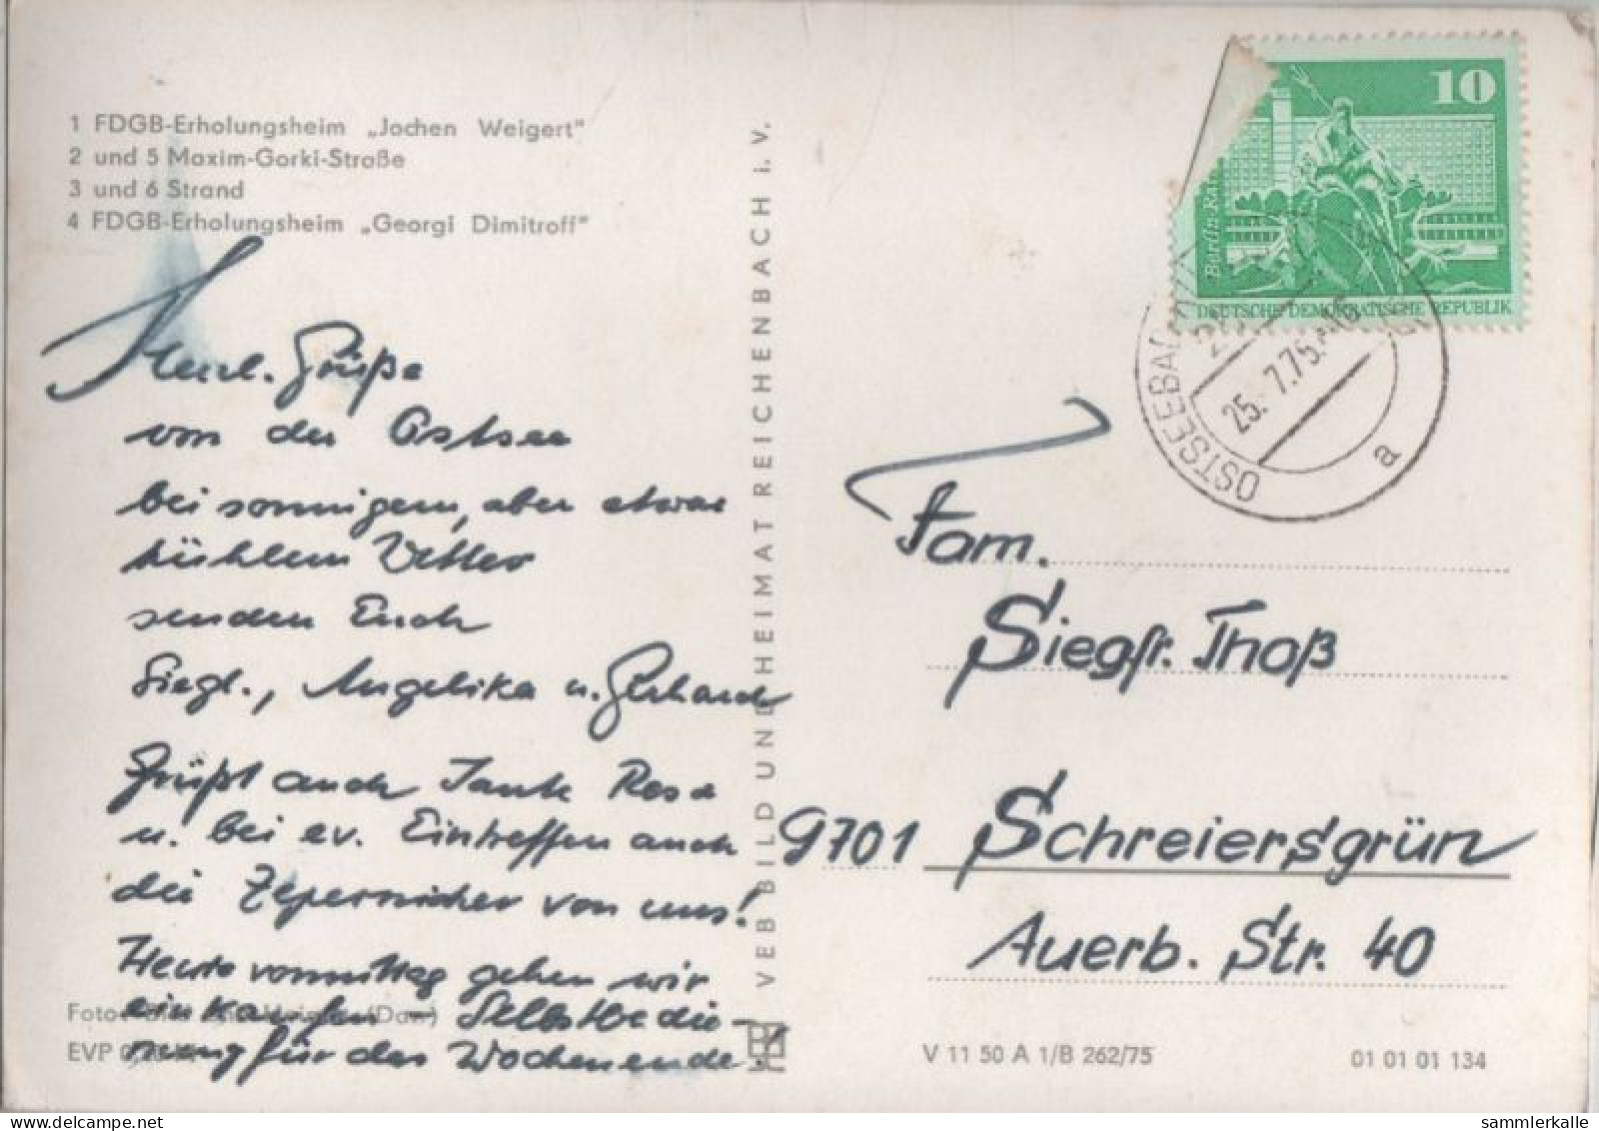 1 FDGB-Erholungsheim „Jochen Weigert"
2 und 5 Maxim-Gorki-Straße
3 und 6 Strand
4 FDGB-Erholungsheim „Georgi Dimitroff"
Herzl. Grüße
von der Ostsee
bei sonnigem, aber etwas
kühlem Wetter
senden Euch
Siegl., Angelika u. Gerhard
Grüßt auch Tante Rosa
u. bei ev. Eintreffen auch
die Zepernicher von uns!
Heute vormittag gehen wir
einkaufen – Selbstbedie-
nung für das Wochenende.
Foto: (Daw)
EVP
VEB BILD UND HEIMAT REICHENBACH i. V.
10
Berlin-
DEUTSCHE DEMOKRATISCHE REPUBLIK
OSTSEEBAD
25.-7.75.
a
Fam.
Siegfr. Thoß
9701 Schreiersgrün
Auerb. Str. 40
V 11 50 A 1/B 262/75
01 01 01 134
sammlerkalle